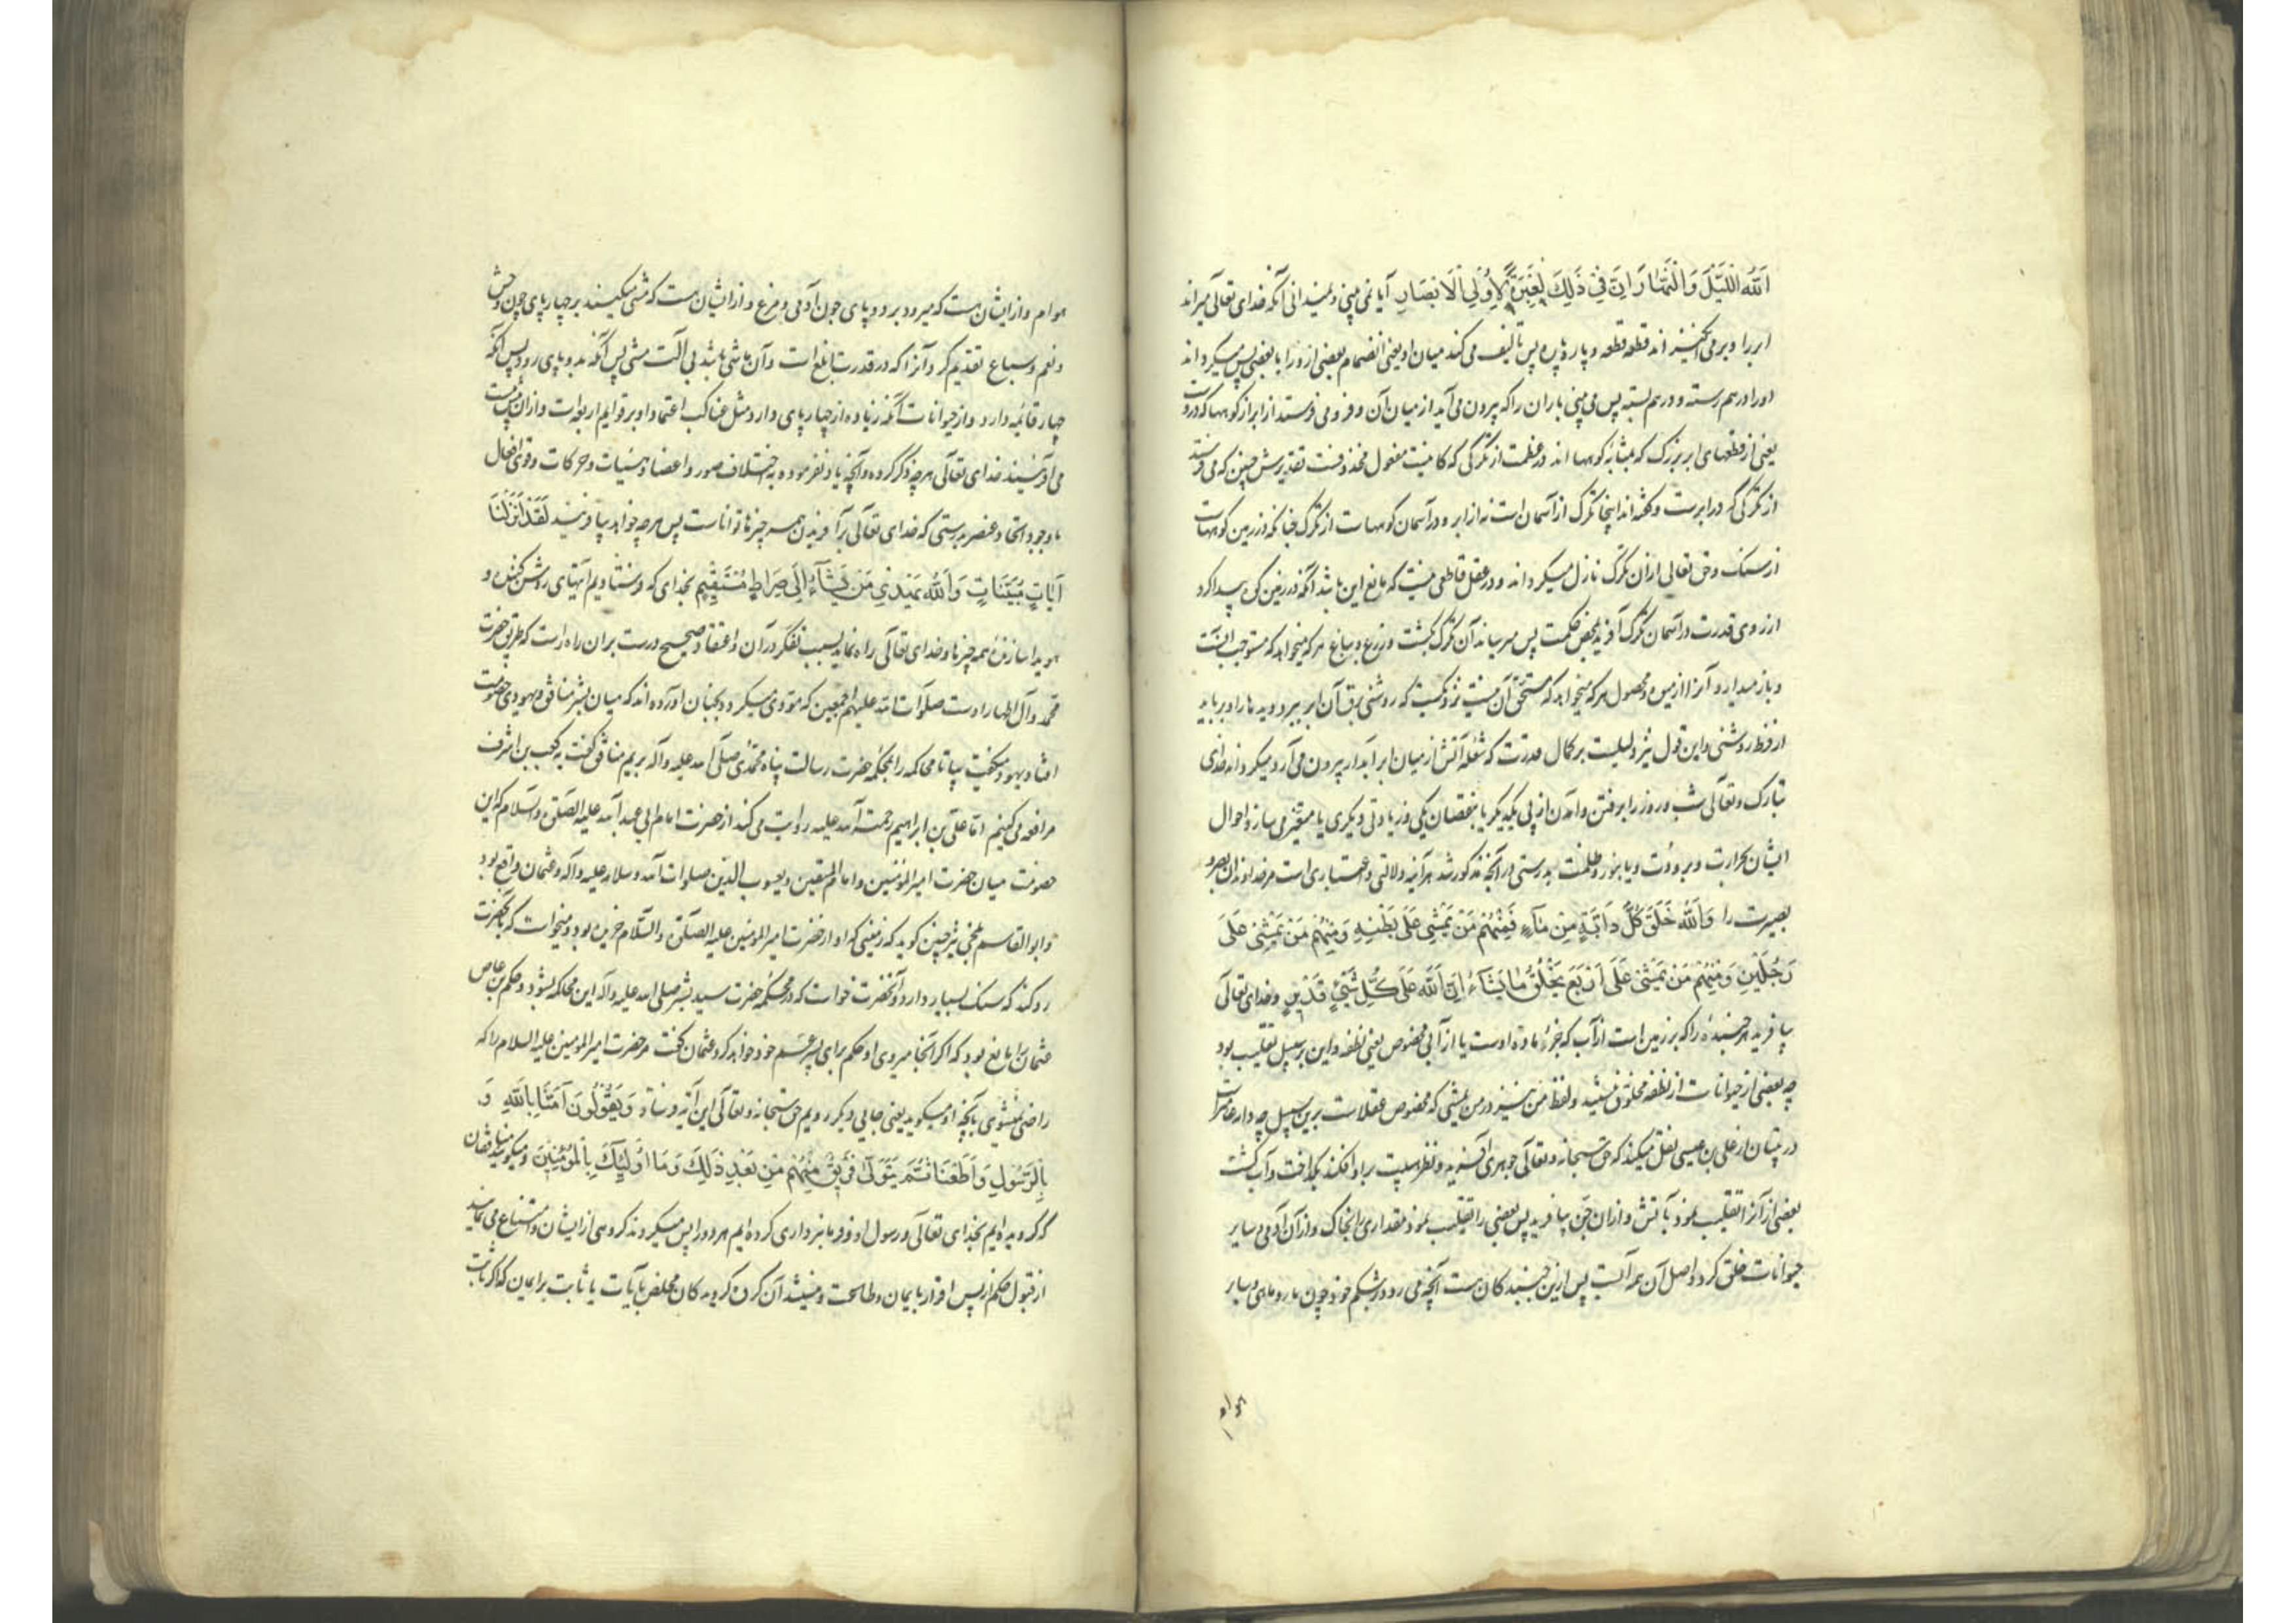 اَللّٰهُ اللَّيْلَ وَالنَّهَارَ اِنَّ فِي ذٰلِكَ لَعِبْرَةً لِاُولِي الْاَبْصَارِ آیا نمی بینی و نمیدانی آنکه خدای تعالی میراند
ابر را و برمی انگیزاند قطعه قطعه و پاره پاره پس تالیف می کند میان او یعنی انضمام بعضی از و را با بعضی پس میگرداند
اورا درهم رسته و درهم بسته پس می بینی باران را که بیرون می آید از میان آن و فرو می فرستد از ابر از کوهها که دروست
یعنی از قطعهای ابر بزرگ که بمثابه کوهها اند در عظمت از تگرگی که کاینست مفعول محذوفست تقدیرش چنین که می فرستد
از تگرگی که در ابرست و گفته اند اینجا تگرگ از آسمان است نه از ابر و در آسمان کوههاست از تگرگ چنانکه در زمین کوههاست
از سنگ و حق تعالی از آن تگرگ نازل میگرداند و در عقل قاطعی نیست که مانع این باشد آنکه در زمین کوه پیدا کرد
از روی قدرت در آسمان تگرگ آفرید بمحض حکمت پس میرساند آن تگرگ بکشت و زرع و باغ هرکه میخواهد که مستوجب آنست
و باز میدارد آنرا از زمین و محصول هرکه میخواهد که مستحق آن نیست نزدیکست که روشنی برق آن ابر ببرد دیدها را و برباید
از فرط روشنی و این قول نیز دلیلیست بر کمال قدرت که شعله آتش از میان ابر آبدار بیرون می آرد و میگرداند خدای
تبارک و تعالی شب و روز را برفتن و آمدن از پی یکدیگر یا بنقصان یکی و زیادتی دیگری یا متغیر می سازد احوال
ایشان بحرارت و برودت و یا بنور و ظلمت بدرستی در آنچه مذکور شد هر آینه دلالتی و اعتباری است مر خداوندان بصر و
بصیرت را وَاللّٰهُ خَلَقَ كُلَّ دَابَّةٍ مِنْ مَآءٍ فَمِنْهُمْ مَنْ يَمْشِي عَلَى بَطْنِهِ وَمِنْهُمْ مَنْ يَمْشِي عَلَى
رِجْلَيْنِ وَمِنْهُمْ مَنْ يَمْشِي عَلَى اَرْبَعٍ يَخْلُقُ مَا يَشَآءُ اِنَّ اللّٰهَ عَلَى كُلِّ شَيْءٍ قَدِيرٌ و خدای تعالی
بیافرید هر جنبنده را که بر زمین است از آب که جزء ماده اوست یا از آبی مخصوص یعنی نطفه و این بر سبیل تغلیب بود
چه بعضی از حیوانات از نطفه مخلوق نیستند و لفظ من نیز در من یمشی که مخصوص عقلاست برین سبیل چه دابه عامست
در تبیان از علی بن عیسی نقل میکند که حق سبحانه و تعالی جوهری آفرید و نظر هیبت بر او افکند بگداخت و آب گشت
بعضی از آنرا تقلیب نمود بآتش و از آن جن بیافرید پس بعضی را تقلیب نمود مقداری بخاک و از آن آدمی و سایر
حیوانات خلق کرد و اصل آن همه آبست پس ازین جنبندگان هست آنچه می رود بر شکم خود چون مار و ماهی و سایر
هوام
هوام و از ایشان هست که میرود بر دو پای چون آدمی و مرغ و از ایشان هست که مشی میکنند بر چهار پای چون وحش
و نعم و سباع تقدیم کرد آنرا که در قدرت ابلغ است و آن ماشی باشد بی آلت مشی پس آنکه بدو پای رود پس آنکه
چهار قائمه دارد و از حیوانات آنکه زیاده از چهار پای دارد مثل عناکب اعتماد او بر قوایم اربعه است
می آفریند خدای تعالی هرچه ذکر کرده و آنچه یاد نفرموده به اختلاف صور و اعضا و هیئات و حرکات و قوی و افعال
با وجود اتحاد عنصر بدرستی که خدای تعالی بر آفریدن همه چیزها تواناست پس هرچه خواهد بیافریند لَقَدْ اَنْزَلْنَا
اٰيَاتٍ مُبَيِّنَاتٍ وَاللّٰهُ يَهْدِي مَنْ يَشَآءُ اِلَى صِرَاطٍ مُسْتَقِيمٍ بخدای که فرستادیم آیتهای روشن کننده و
هویدا سازنده همه چیزها و خدای تعالی راه نماید بسبب تفکر در آن و اعتقاد صحیح درست بران راه راست که طریق حضرت
محمد و آل اطهار اوست صلوات الله علیهم اجمعین که مودی میگردد بجنان آورده اند که میان بشر منافق و یهودی خصومت
افتاد یهود میگفت بیا تا محاکمه را بمحکمه حضرت رسالت پناه محمدی صلی الله علیه و آله بریم منافق گفت به کعب بن اشرف
مرافعه می کنیم اما علی بن ابراهیم رحمة الله علیه روایت می کند از حضرت امام ابی عبد الله علیه الصلوة والسلام که این
خصومت میان حضرت امیر المؤمنین و امام المتقین و یعسوب الدین صلوات الله و سلامه علیه و آله و عثمان واقع بود
و ابو القاسم بلخی نیز چنین گوید که زمینی که او از حضرت امیر المؤمنین علیه الصلوة والسلام خریده بود و میخواست که بآنحضرت
رد کند که سنگ بسیار دارد و آنحضرت خواست که در محکمه حضرت سید بشر صلی الله علیه و آله این محاکمه بشود و حکم بن عاص
عثمان را مانع بود که اگر آنجا میروی او حکم برای پسر عم خود خواهد کرد و عثمان گفت مر حضرت امیر المومنین علیه السلام را که
راضی نمیشوی بآنچه او میگوید یعنی جایی دیگر رویم حق سبحانه و تعالی این آیه فرستاد وَيَقُولُونَ اٰمَنَّا بِاللّٰهِ وَ
بِالرَّسُولِ وَاَطَعْنَا ثُمَّ يَتَوَلَّى فَرِيقٌ مِنْهُمْ مِنْ بَعْدِ ذٰلِكَ وَمَا اُولٰئِكَ بِالْمُؤْمِنِينَ و میگویند منافقان
که گرویده ایم بخدای تعالی و رسول او و فرمانبرداری کرده ایم هر دو را پس میگردند گروهی از ایشان و امتناع می نمایند
از قبول حکم از پس اقرار بایمان و طاعت و نیستند آن گروه گرویدگان مخلص بآیات یا ثابت بر ایمان که اگر ثابت